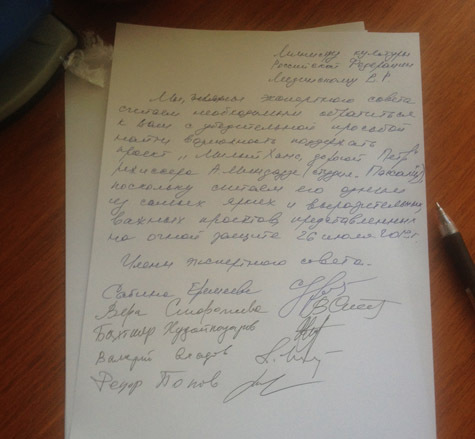 Министру культуры
Российской Федерации
Мединскому В.Р.
Мы, экспертного совета
считаем необходимым обратиться
к вам с убедительной просьбой
найти возможность поддержать
проект „ Милый Ханс, дорогой Петр"
режиссера А. Миндадзе (студия
поскольку считаем его одним
из самых ярких и
важных проектов представленных
на очной защите 26 июля
Члены экспертного совета.
Сабина Еремеева
Вера Сторожева
Бахтиер Худойназаров
Валерий
Федор Попов